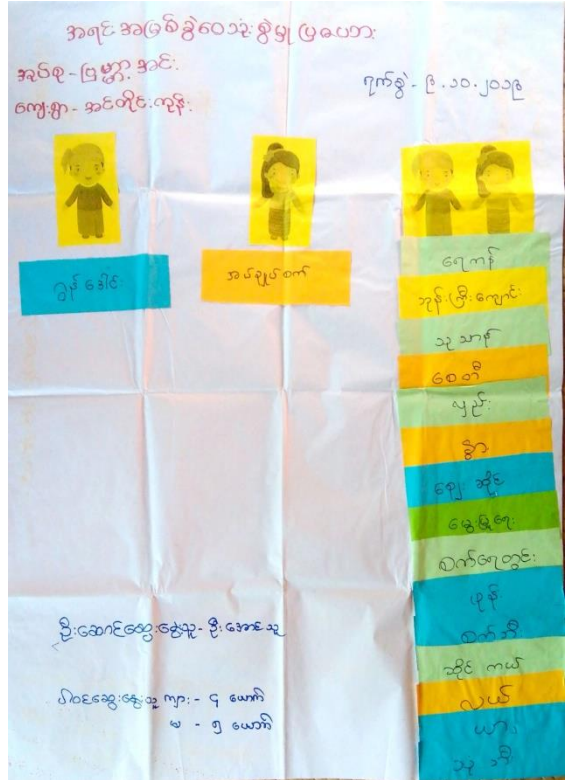 အရင်းအမြစ်ခွဲဝေသုံးစွဲမှုပြဇယား
အုပ်စု - ဗြဟ္မာ့အင်း
ကျေးရွာ - အင်တိုင်းကုန်း
ရက်စွဲ - ၉.၁၀.၂၀၁၉
ဂွန်ဒေါင်း
အပ်ချုပ်စက်
ရေကန်
ဘုန်းကြီးကျောင်း
သုသာန်
စေတီ
လှည်း
နွား
ဈေးဆိုင်
မွေးမြူရေး
စက်ရေတွင်း
ဖုန်း
စက်ဘီး
ဆိုင်ကယ်
လယ်
ယာ
ဦးဆောင်ဆွေးနွေးသူ - ဦးအောင်သူ
ပါဝင်ဆွေးနွေးသူ ကျား - ၄ ယောက်
မ - ၅ ယောက်